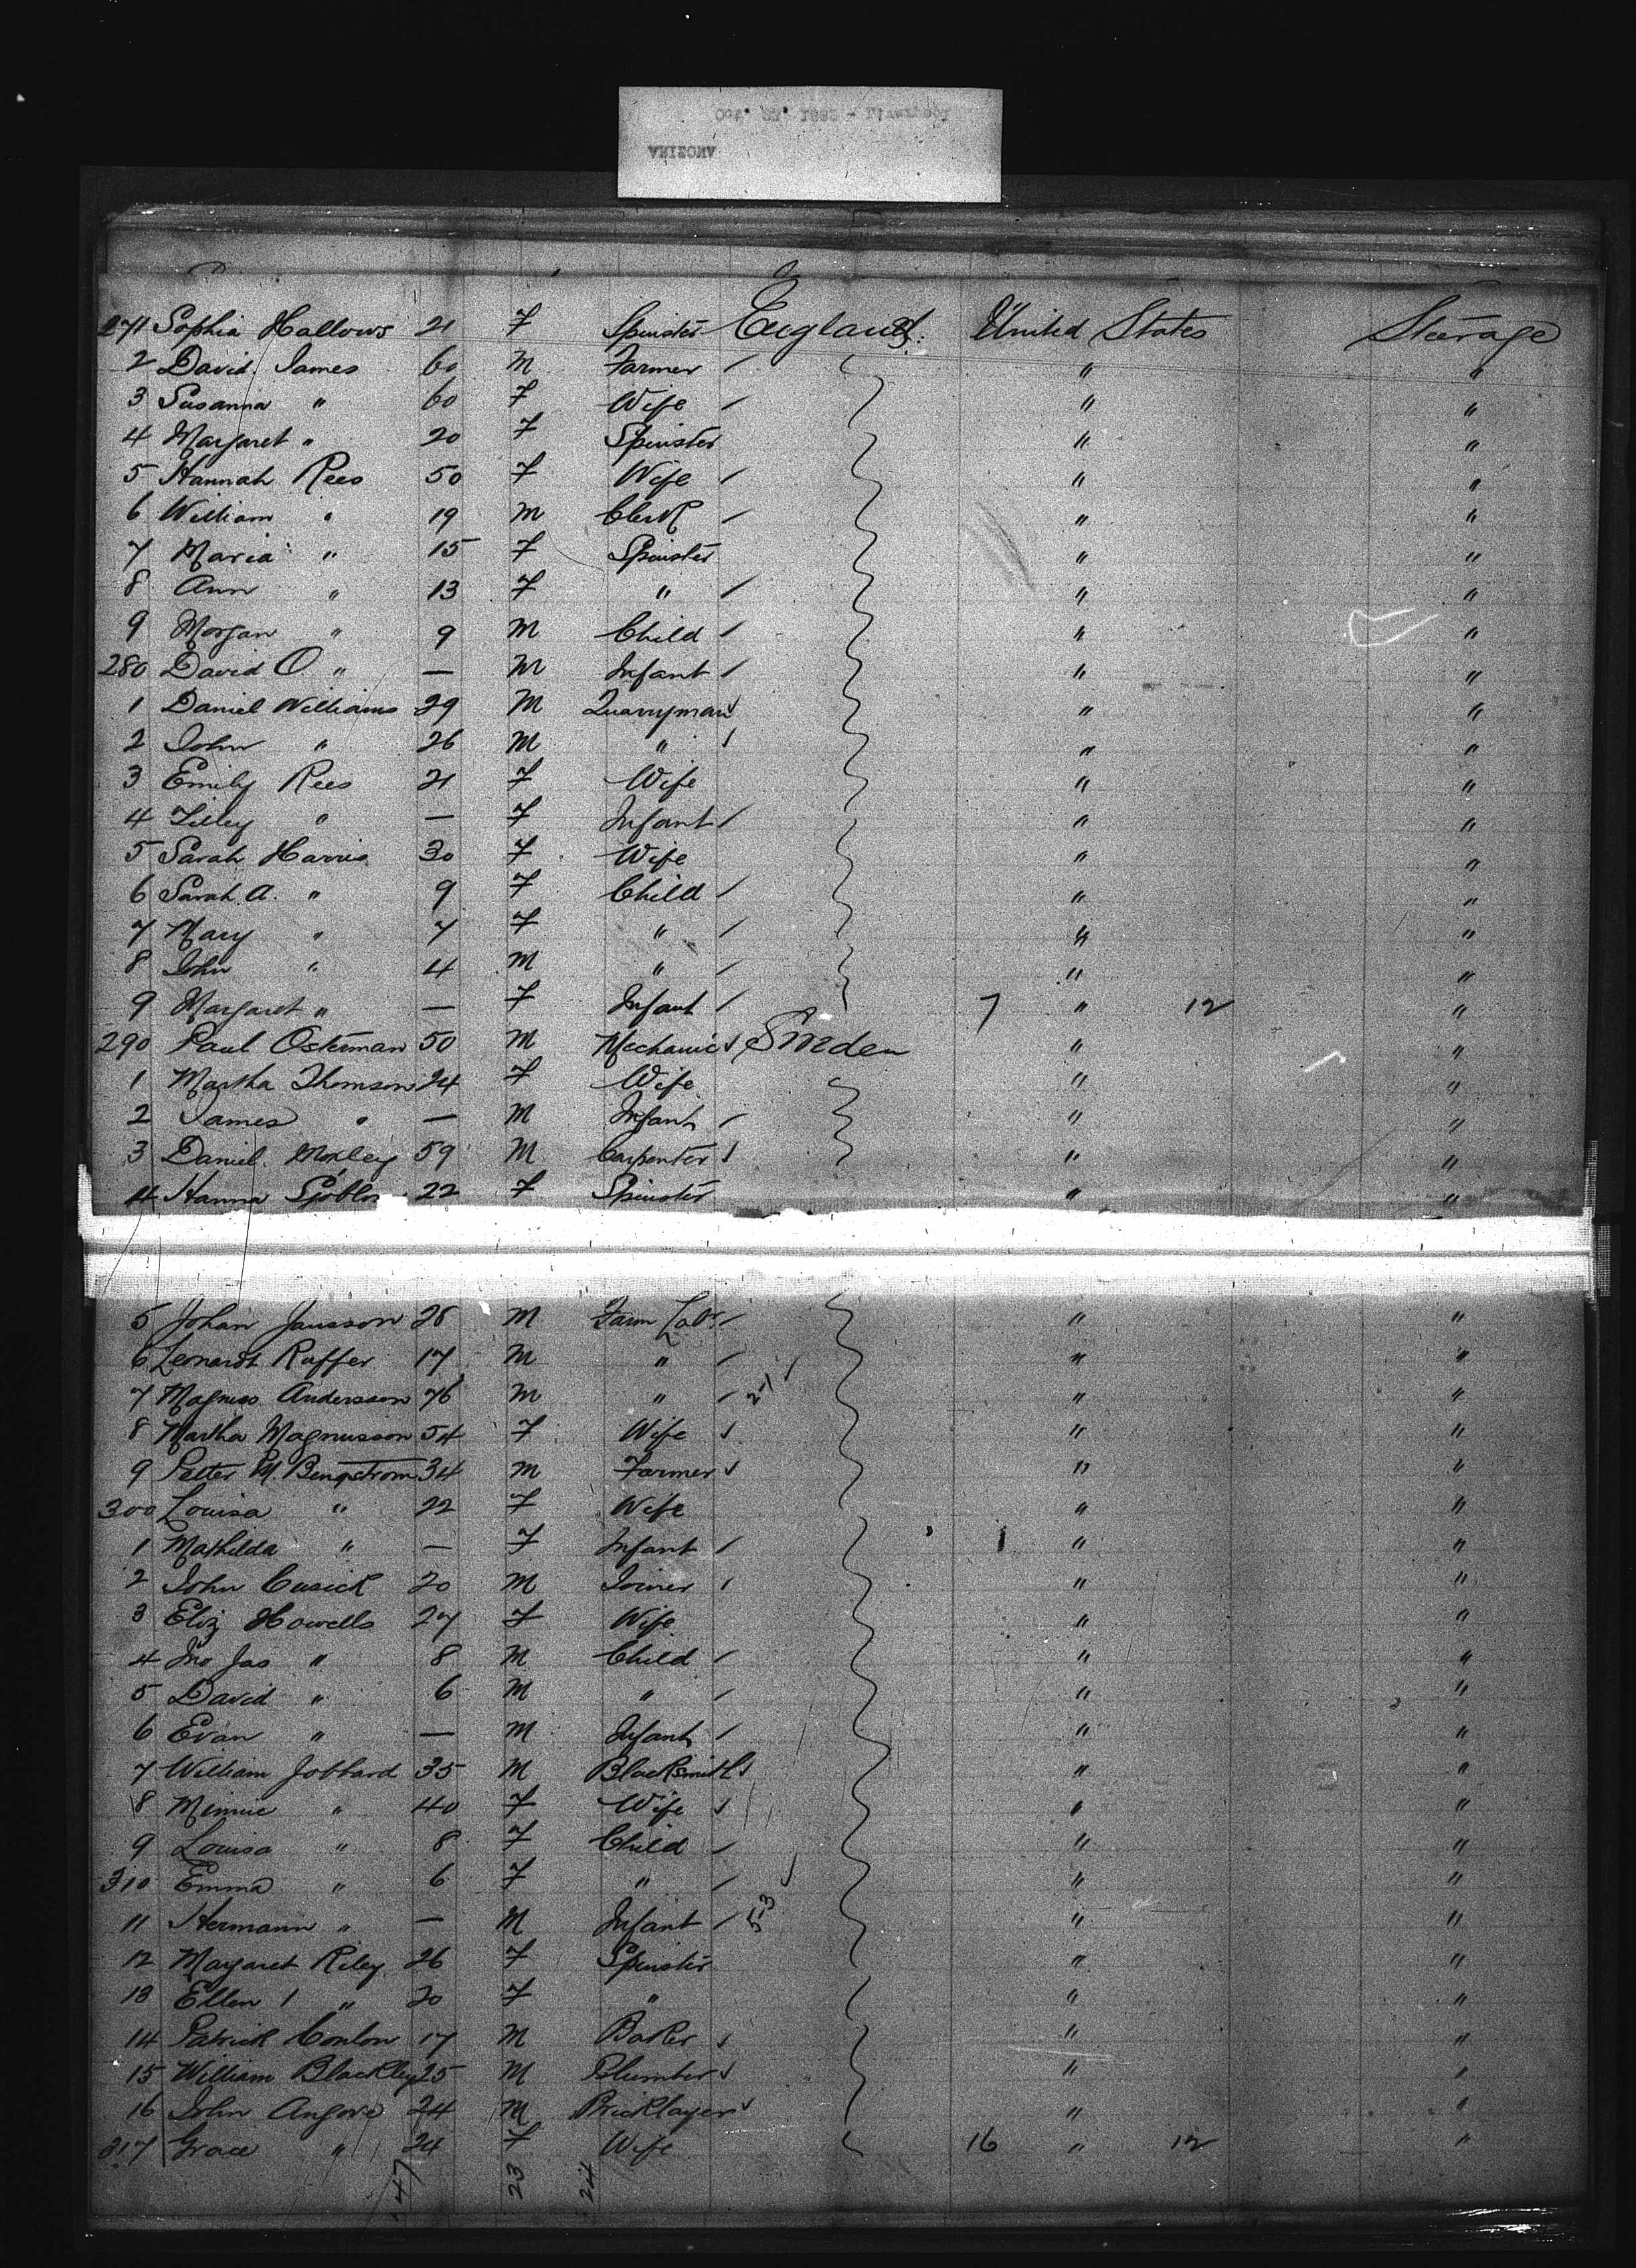 271 Sophia Hallows 21 F Spinster England United States Steerage
2 David James 60 M Farmer " "
3 Susanna " 60 F Wife " "
4 Margaret " 20 F Spinster " "
5 Hannah Rees 50 F Wife " "
6 William " 19 M Clerk " "
7 Maria " 15 F Spinster " "
8 Ann " 13 F " " "
9 Morgan " 9 M Child " "
280 David O. " — M Infant " "
1 Daniel Williams 29 M Quarryman " "
2 John " 26 M " " "
3 Emily Rees 21 F Wife " "
4 " — F Infant " "
5 Sarah Harris 30 F Wife " "
6 Sarah A. " 9 F Child " "
7 Mary " 7 F " " "
8 John " 4 M " " "
9 Margaret " — F Infant 7 " 12 "
290 Paul Osterman 50 M Mechanic Sweden " "
1 Martha Thomson 24 F Wife " "
2 James " — M Infant " "
3 Daniel Moxley 59 M Carpenter " "
4 Hanna 22 F Spinster " "
5 Johan Jansson 28 M Farm Labr " "
6 Lenardt Raffer 17 M " " "
7 Magnus Andersson 76 M " 2-1 " "
8 Martha Magnusson 54 F Wife " "
9 Petter M. Bengstrom 34 M Farmer " "
300 Louisa " 22 F Wife " "
1 Mathilda " — F Infant 1 " "
2 John Cusick 20 M Joiner " "
3 Eliz Howells 27 F Wife " "
4 Jno Jas " 8 M Child " "
5 David " 6 M " " "
6 Evan " — M Infant " "
7 William Jobbard 35 M Blacksmith " "
8 Minnie " 40 F Wife " "
9 Louisa " 8 F Child " "
310 Emma " 6 F " " "
11 Hermann " — M Infant 5-3 " "
12 Margaret Riley 26 F Spinster " "
13 Ellen " 20 F " " "
14 Patrick Conlon 17 M Baker " "
15 William Blackley 25 M Plumber " "
16 John Angove 24 M Bricklayer " "
317 Grace " 24 F Wife 16 " 12 "
47 23 24